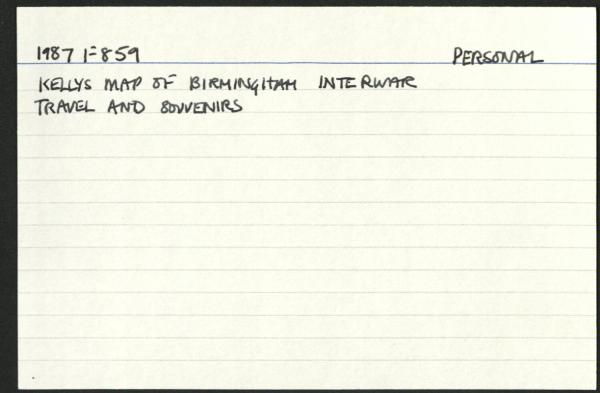 1987 F859 PERSONAL
KELLYS MAP OF BIRMINGHAM INTERWAR
TRAVEL AND SOUVENIRS